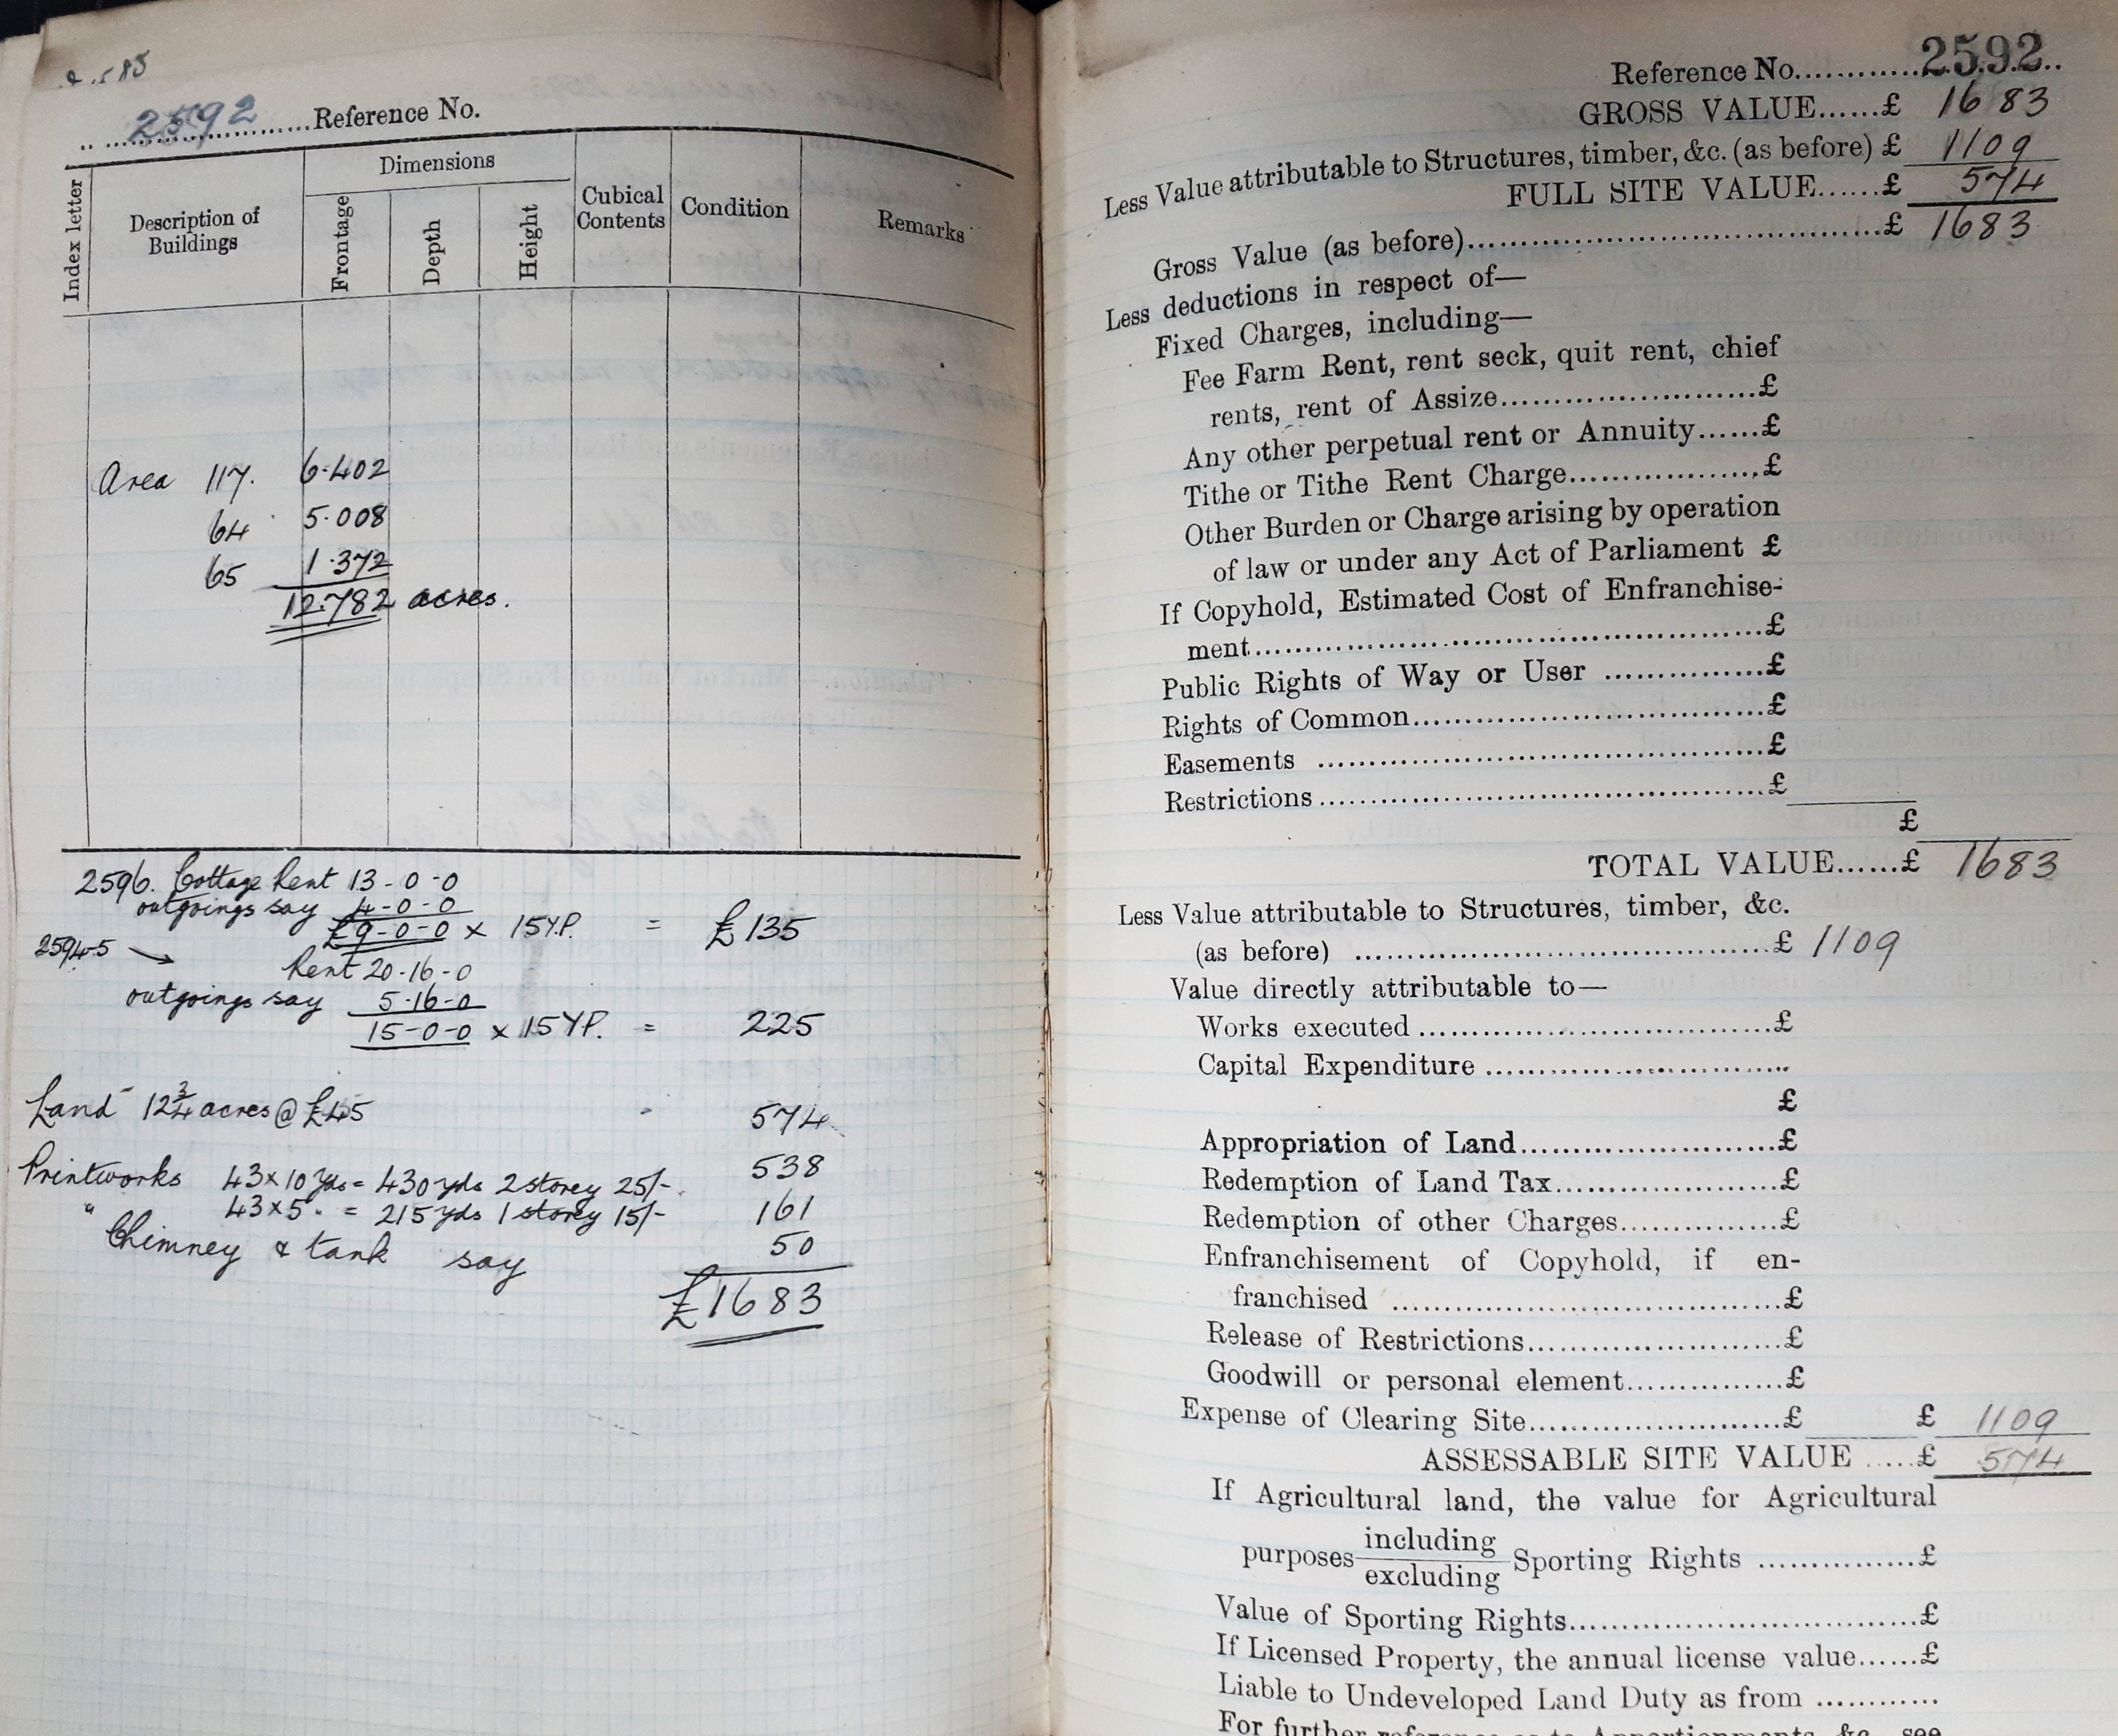 2592 Reference No.
Index letter
Description of
Buildings
Dimensions
Frontage
Depth
Height
Cubical
Contents
Condition
Remarks
Area 117. 6.402
64 5.008
65 1.372
12.782 acres.
2596. Cottage Rent 13-0-0
outgoings say 4-0-0
£9-0-0 x 15 Y.P. = £135
2594-5
Rent 20-16-0
outgoings say 5-16-0
15-0-0 x 15 Y.P. = 225
Land 12¾ acres @ £45 574
Printworks 43 x 10 yds = 430 yds 2 storey 25/- 538
" 43 x 5 " = 215 yds 1 storey 15/- 161
Chimney & tank say 50
£1683
Reference No.............2592..
GROSS VALUE......£ 1683
Less Value attributable to Structures, timber, &c. (as before) £ 1109
FULL SITE VALUE......£ 574
Gross Value (as before)..........£ 1683
Less deductions in respect of—
Fixed Charges, including—
Fee Farm Rent, rent seck, quit rent, chief
rents, rent of Assize..........£
Any other perpetual rent or Annuity......£
Tithe or Tithe Rent Charge..........£
Other Burden or Charge arising by operation
of law or under any Act of Parliament £
If Copyhold, Estimated Cost of Enfranchise-
ment..........£
Public Rights of Way or User ..........£
Rights of Common..........£
Easements ..........£
Restrictions..........£
£
TOTAL VALUE......£ 1683
Less Value attributable to Structures, timber, &c.
(as before) ..........£ 1109
Value directly attributable to—
Works executed ..........£
Capital Expenditure ..........
£
Appropriation of Land..........£
Redemption of Land Tax..........£
Redemption of other Charges..........£
Enfranchisement of Copyhold, if en-
franchised ..........£
Release of Restrictions..........£
Goodwill or personal element..........£
Expense of Clearing Site..........£ £ 1109
ASSESSABLE SITE VALUE .....£ 574
If Agricultural land, the value for Agricultural
purposes including
excluding Sporting Rights ..........£
Value of Sporting Rights..........£
If Licensed Property, the annual license value......£
Liable to Undeveloped Land Duty as from ............